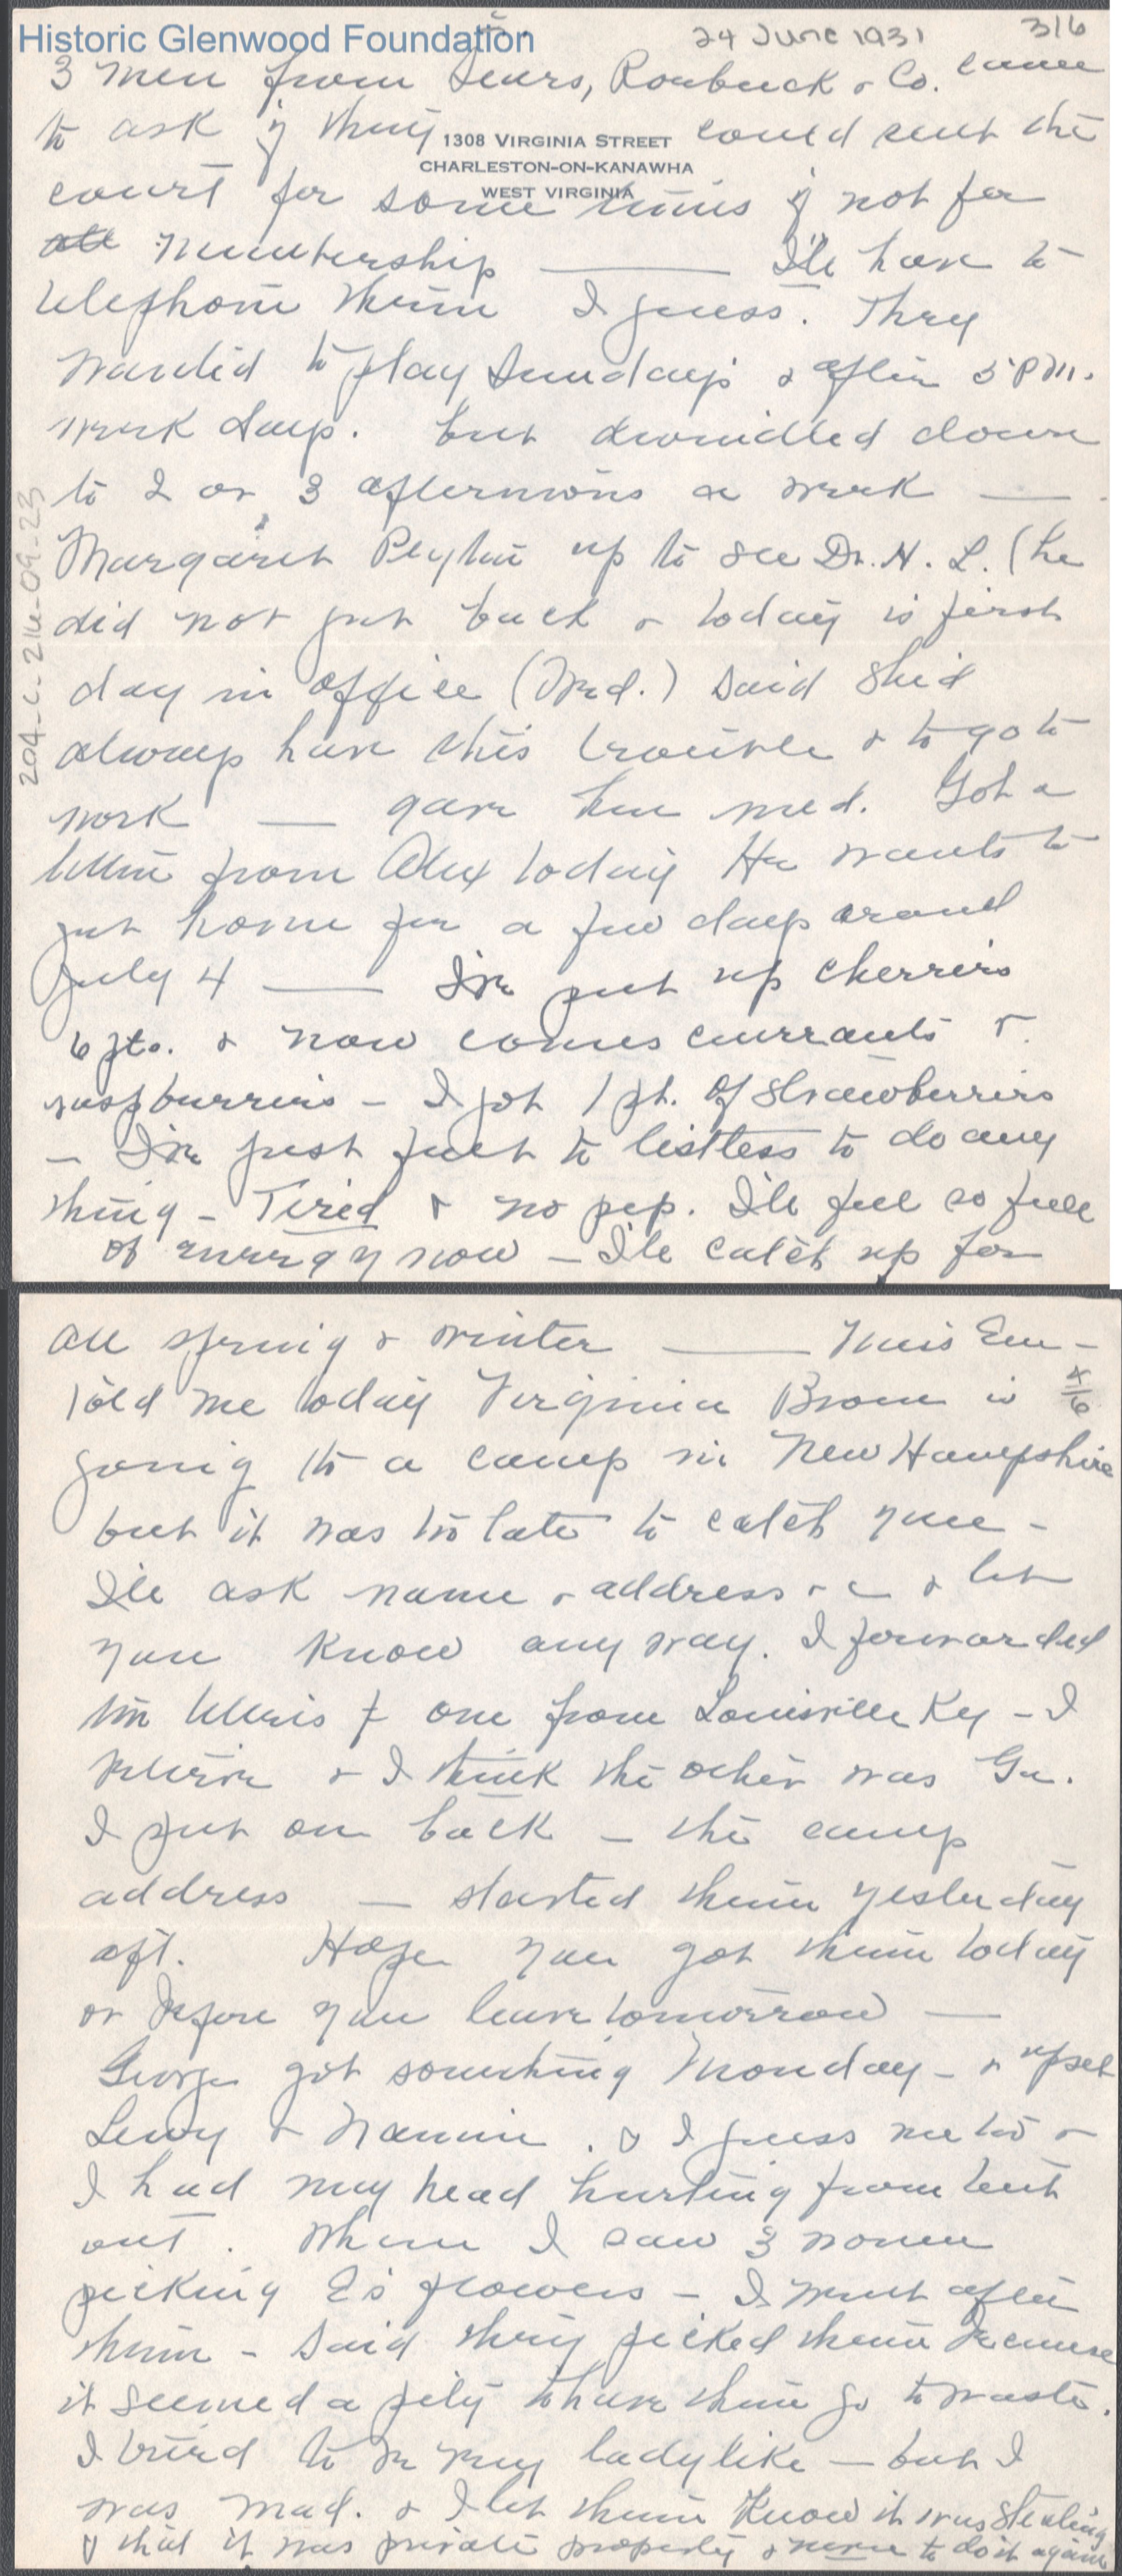 Historic Glenwood Foundation
24 June 1931
3/6
3 men from Sears, Roebuck & Co. came
to ask if they could rent the
1308 VIRGINIA STREET
CHARLESTON-ON-KANAWHA
WEST VIRGINIA
court for some times if not for
all membership — I'll have to
telephone them I guess. They
wanted to play Sundays & after 5 P.M.
week days. but dwindled down
to 2 or 3 afternoons a week —
Margaret Peyton up to see Dr. H. L. (he
did not get back & today is first
day in office (Wed.) said she'd
always have this trouble & to go to
work — gave her med. Got a
letter from Alex today He wants to
get home for a few days around
July 4 — I've put up cherries
6 pts. & now comes currants &
raspburries – I got 1 pt. of strawberries
– I've just felt to listless to do any
thing – Tired & no pep. I'll feel so full
of energy now – I'll catch up for
204-C-216-09-23
all spring & winter — Miss Em –
4/6
told me today Virginia Brown is
going to a camp in New Hampshire
but it was too late to catch you –
I'll ask name & address &c & let
you know any way. I forwarded
two letters & one from Louisville Ky – I
believe & I think the other was Ga.
I put on back – the camp
address — started them yesterday
aft. Hope you got them today
or before you leave tomorrow —
George got something Monday – & upset
Lewy & Nannie. & I guess me too &
I had my head hurting from
out. When I saw 3 women
picking E's flowers – I went after
them – said they picked them because
it seemed a pity to have them go to waste.
I tried to be very ladylike — but I
was mad. & I let them know it was stealing
& that it was private property & never to do it again